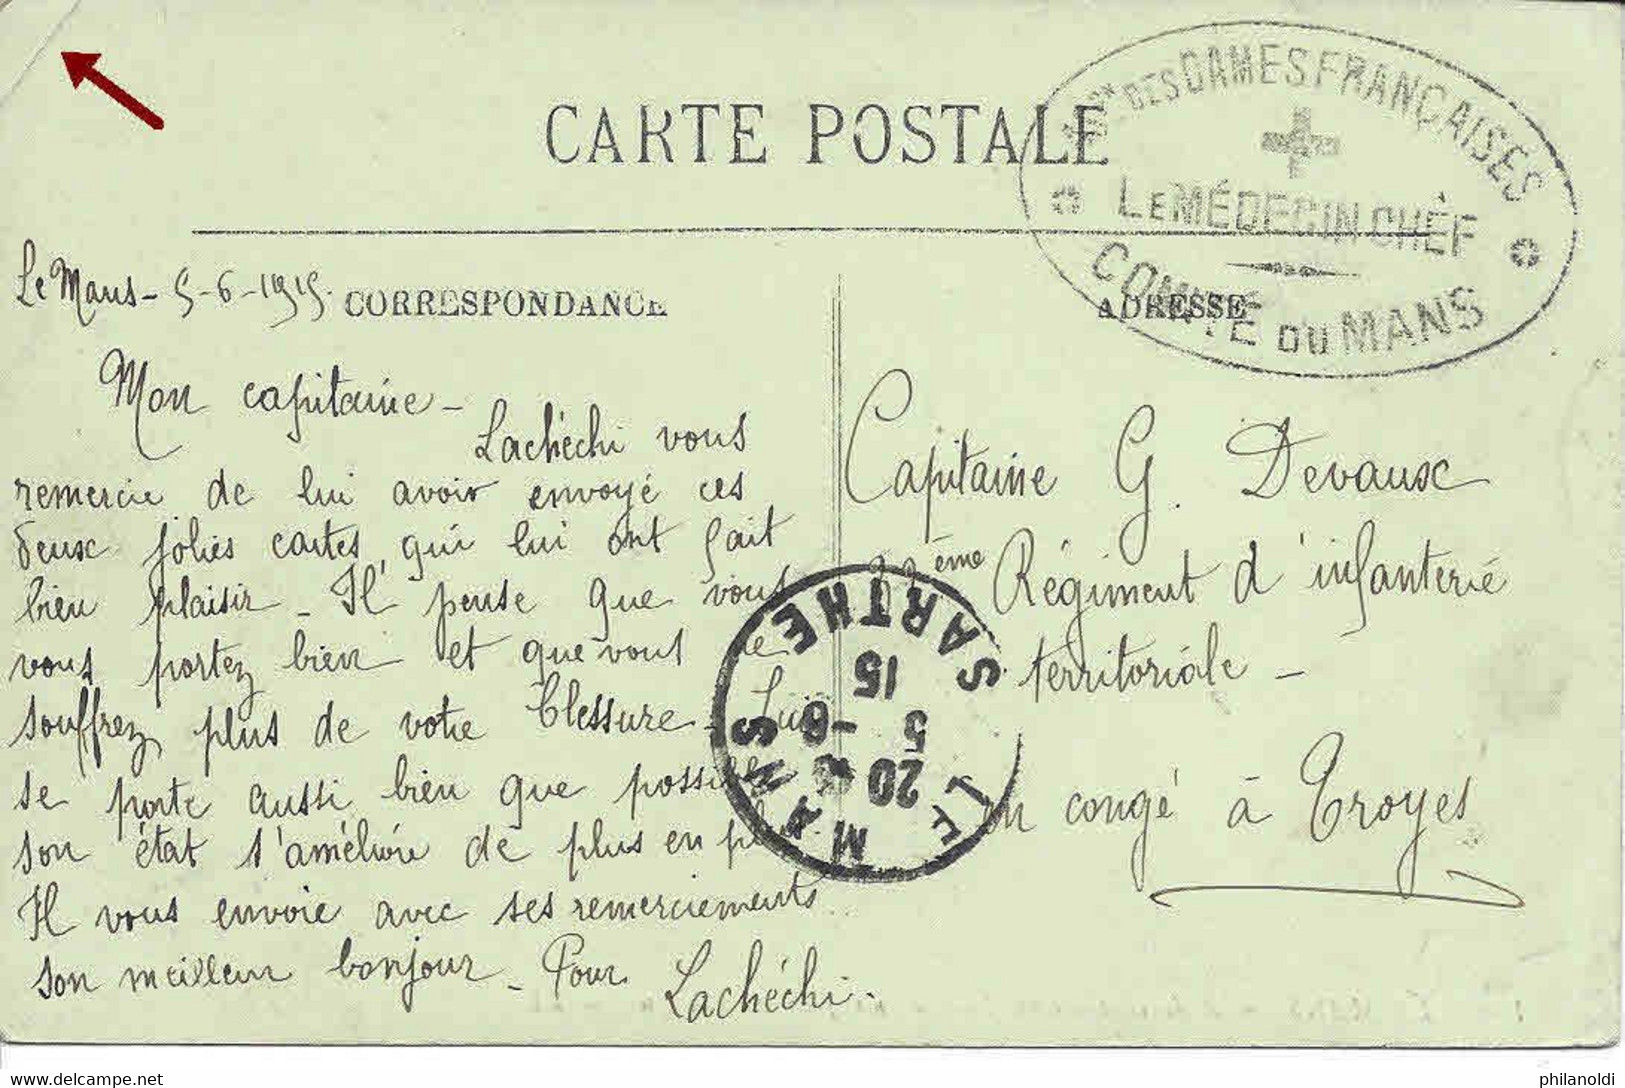 CARTE POSTALE
DES DAMES FRANÇAISES
LE MÉDECIN CHEF
COMITÉ DU MANS
Le Mans - 5-6-1915.
CORRESPONDANCE
ADRESSE
Mon capitaine -
Lachéchi vous
remercie de lui avoir envoyé ces
deux jolies cartes qui lui ont fait
bien plaisir - Il pense que vous
vous portez bien et que vous ne
souffrez plus de votre blessure - Lui
se porte aussi bien que possible
son état s'améliore de plus en plus
Il vous envoie avec ses remerciements
son meilleur bonjour - Pour Lachéchi.
Capitaine G. Devaux
ème Régiment d'infanterie
territoriale -
en congé à Troyes
LE MANS
SARTHE
20
5 -6
15
delcampe.net
philanoldi